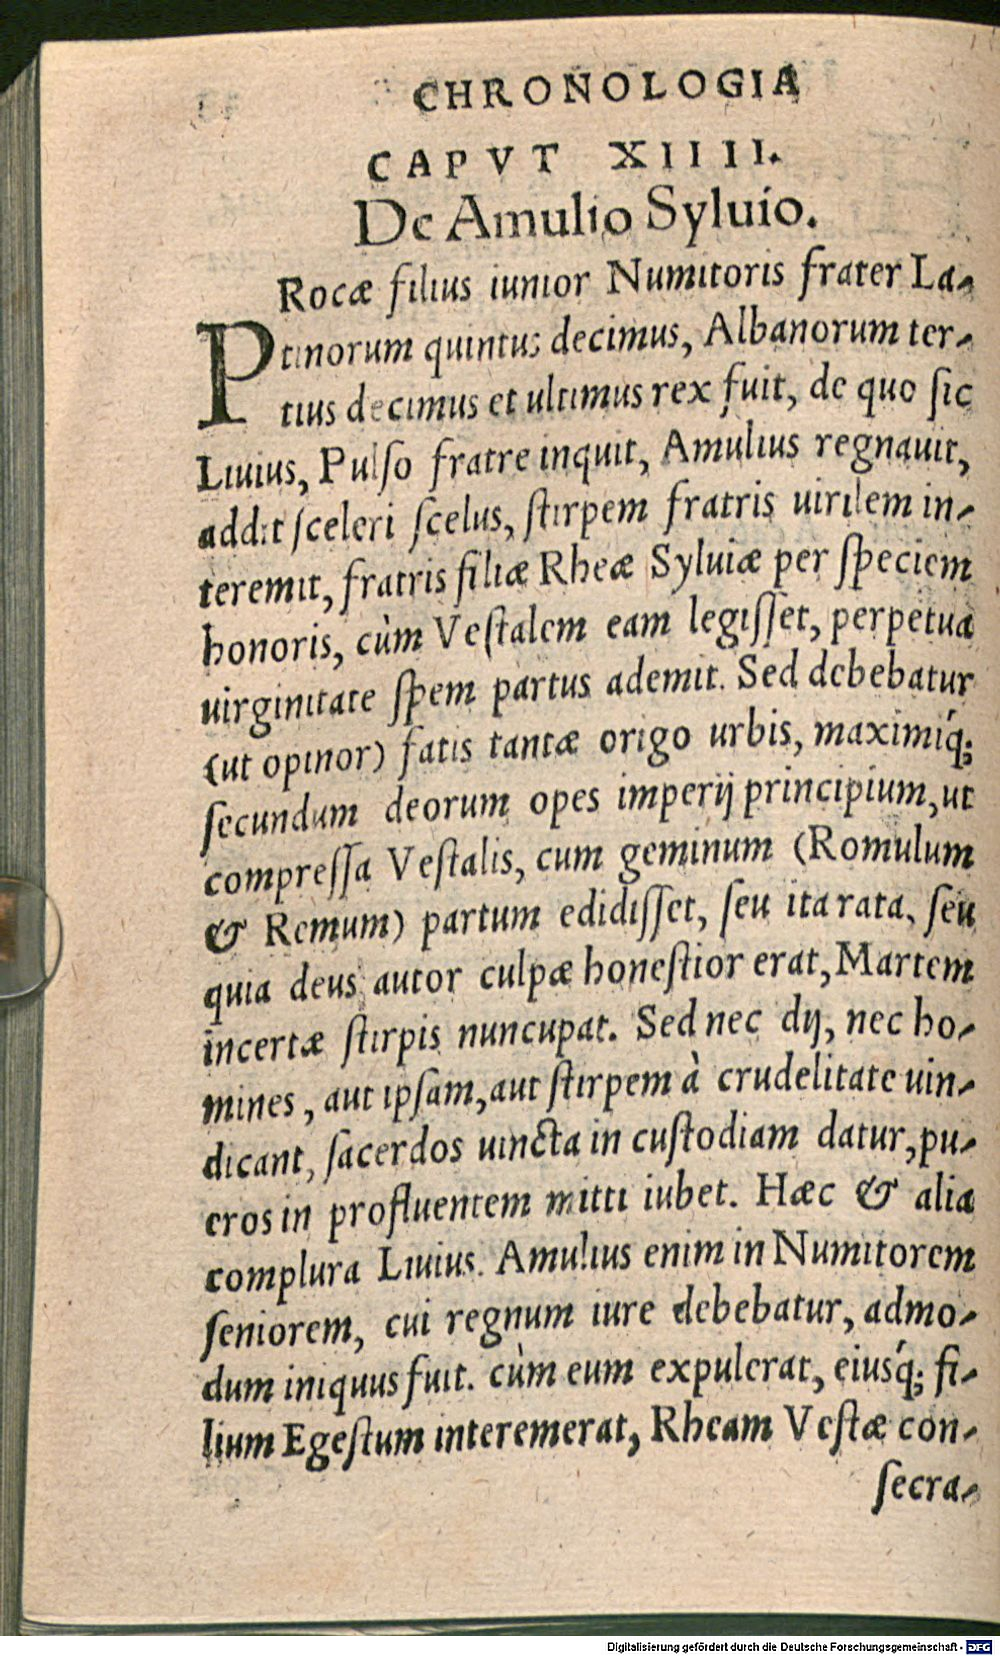 CHRONOLOGIA
CAPVT XIIII.
De Amulio Syluio.
PRocæ filius iunior Numitoris frater La-
tinorum quintus decimus, Albanorum ter-
tius decimus et ultimus rex fuit, de quo ſic
Liuius, Pulſo fratre inquit, Amulius regnauit,
addit ſceleri ſcelus, ſtirpem fratris uirilem in-
teremit, fratris filiæ Rheæ Syluiæ per ſpeciem
honoris, cùm Veſtalem eam legiſſet, perpetua
uirginitate ſpem partus ademit. Sed debebatur
(ut opinor) fatis tantæ origo urbis, maximiq́;
ſecundum deorum opes imperij principium, ut
compreſſa Veſtalis, cum geminum (Romulum
& Remum) partum edidiſſet, ſeu ita rata, ſeu
quia deus autor culpæ honeſtior erat, Martem
incertæ ſtirpis nuncupat. Sed nec dij, nec ho-
mines, aut ipſam, aut ſtirpem à crudelitate uin-
dicant, ſacerdos uincta in cuſtodiam datur, pu-
eros in profluentem mitti iubet. Hæc & alia
complura Liuius. Amulius enim in Numitorem
ſeniorem, cui regnum iure debebatur, admo-
dum iniquus fuit. cùm eum expulerat, eiusq́; fi-
lium Egeſtum interemerat, Rheam Veſtæ con-
ſecra-
Digitalisierung gefördert durch die Deutsche Forschungsgemeinschaft - DFG